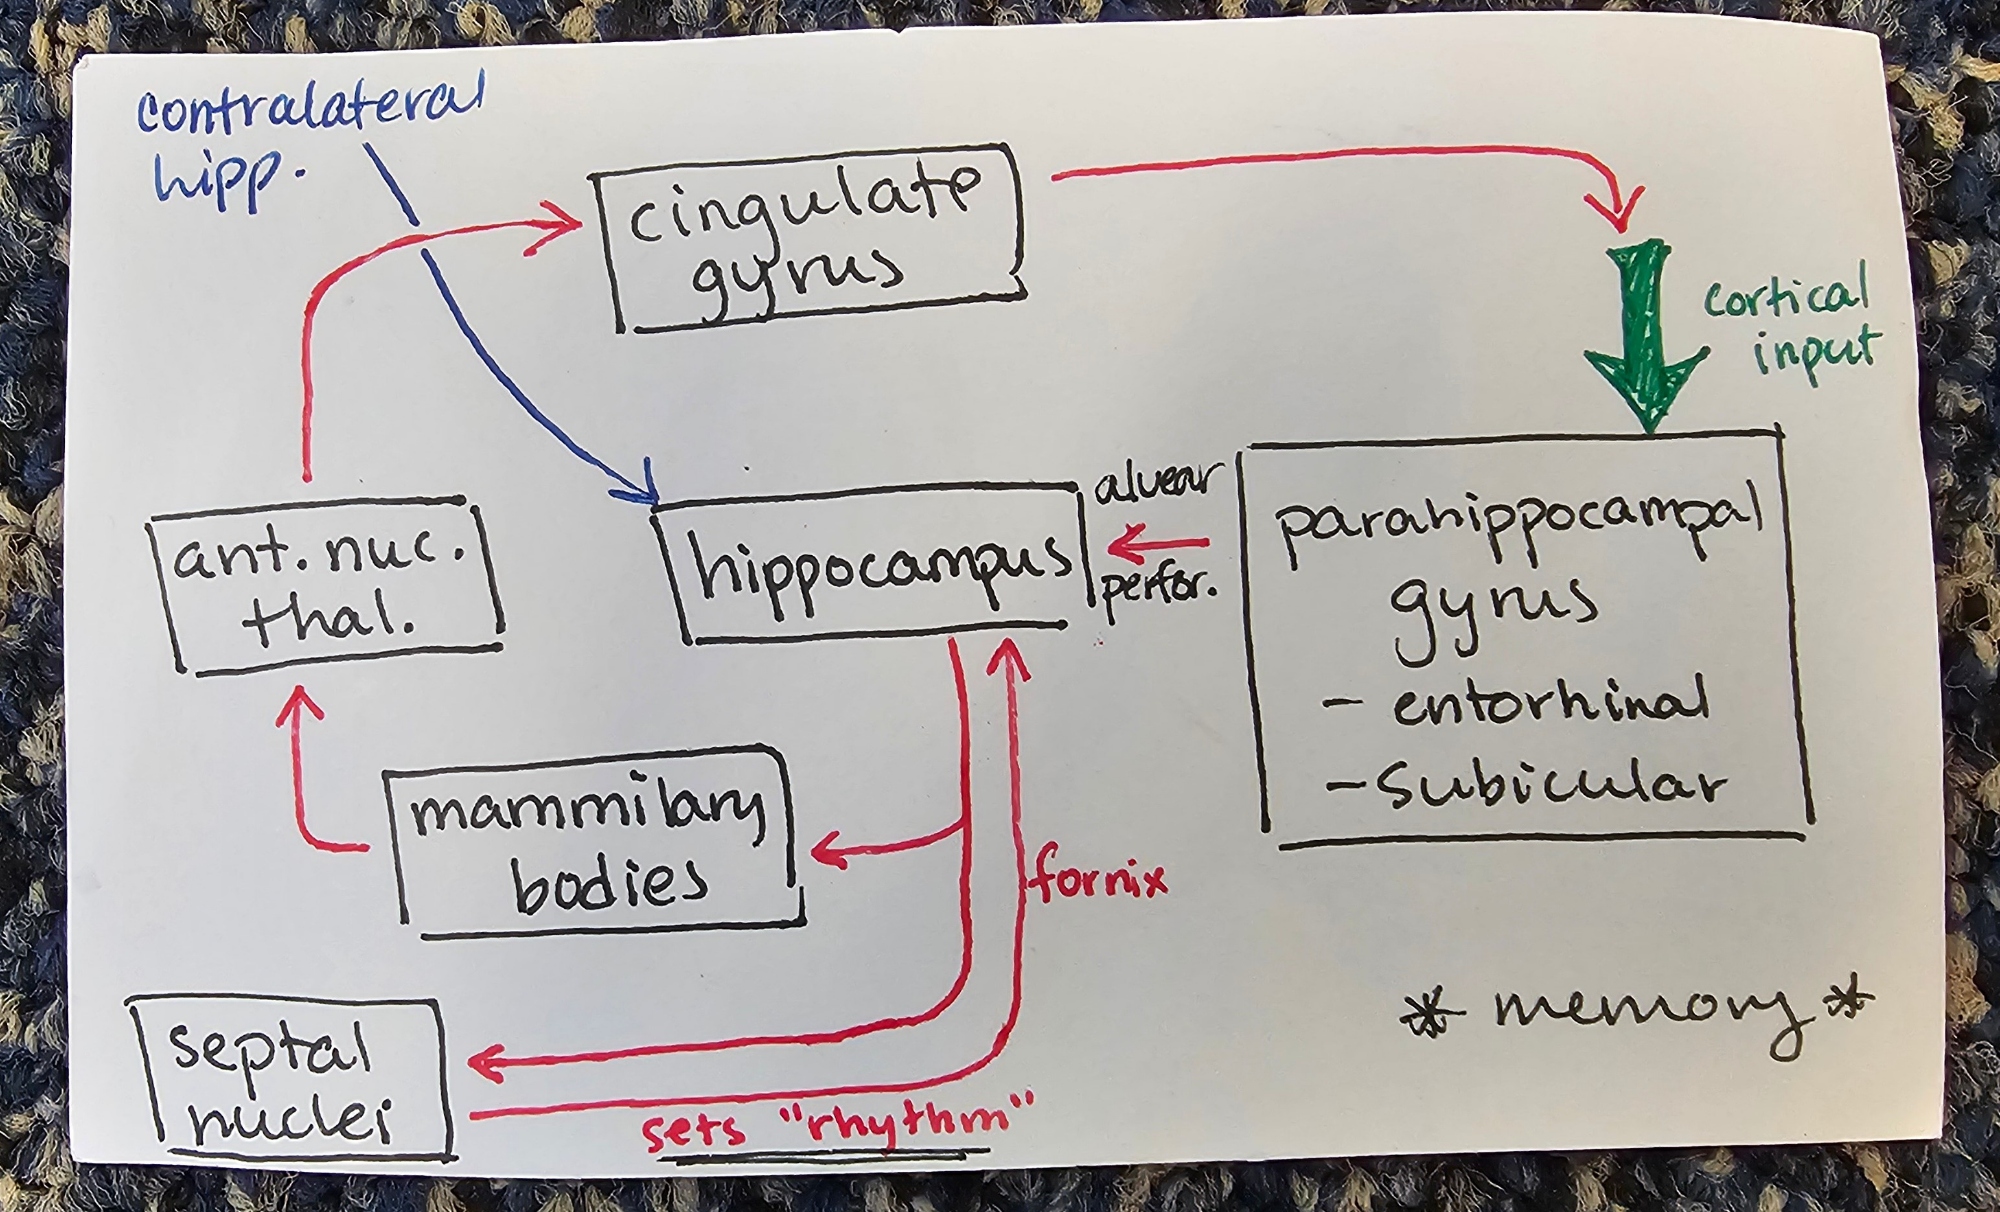 contralateral
hipp.
cingulate
gyrus
cortical
input
ant. nuc.
thal.
hippocampus
alvear
perfor.
parahippocampal
gyrus
- entorhinal
- subicular
mammilary
bodies
fornix
septal
nuclei
sets "rhythm"
* memory *